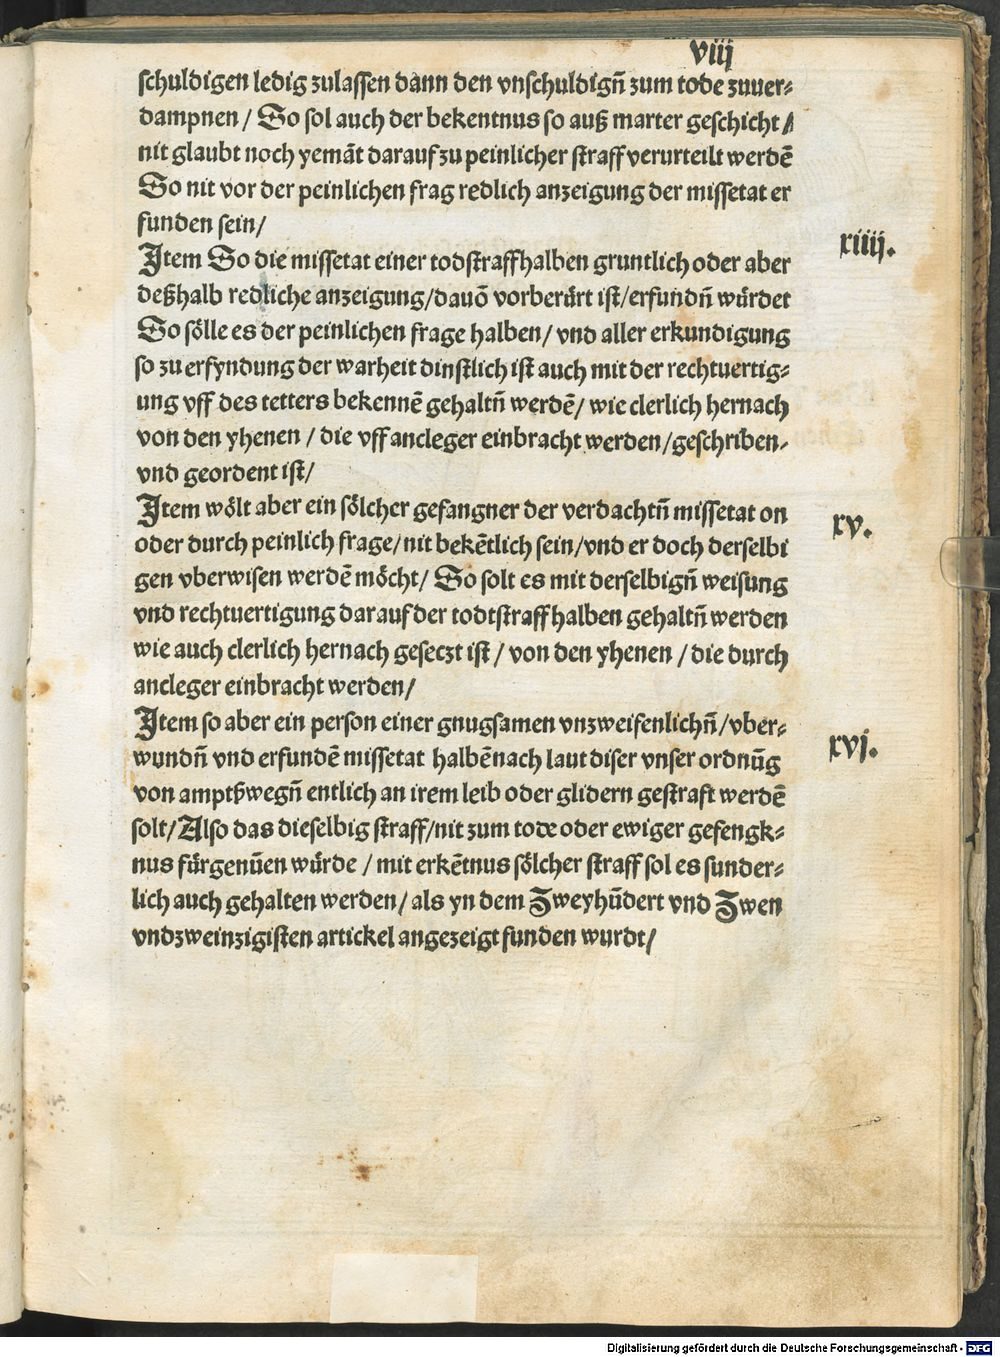 viij
schuldigen ledig zulassen dann den vnschuldigñ zum tode zuuer⸗
dampnen / So sol auch der bekentnus so auß marter geschicht /
nit glaubt noch yemāt darauf zu peinlicher straff verurteilt werdē
So nit vor der peinlichen frag redlich anzeigung der missetat er
funden sein /
xiiij.
Item So die missetat einer todstraff halben gruntlich oder aber
deßhalb redliche anzeigung / dauō vorberürt ist / erfundñ würdet
So sölle es der peinlichen frage halben / vnd aller erkundigung
so zu erfyndung der warheit dinstlich ist auch mit der rechtuertig⸗
ung vff des tetters bekennē gehaltñ werdē / wie clerlich hernach
von den yhenen / die vff ancleger einbracht werden / geschriben
vnd geordent ist /
xv.
Item wölt aber ein sölcher gefangner der verdachtñ missetat on
oder durch peinlich frage / nit bekētlich sein / vnd er doch derselbi
gen vberwisen werdē möcht / So solt es mit derselbigñ weisung
vnd rechtuertigung darauf der todtstraff halben gehaltñ werden
wie auch clerlich hernach gesetzt ist / von den yhenen / die durch
ancleger einbracht werden /
xvj.
Item so aber ein person einer gnugsamen vnzweifenlichñ / vber⸗
wundñ vnd erfundē missetat halbē nach laut diser vnser ordnūg
von amptßwegñ entlich an irem leib oder glidern gestraft werdē
solt / Also das dieselbig straff / nit zum tode oder ewiger gefengk⸗
nus fürgenūen würde / mit erkētnus sölcher straff sol es sunder⸗
lich auch gehalten werden / als yn dem Zweyhūdert vnd Zwen
vndzweinzigisten artickel angezeigt funden wurdt /
Digitalisierung gefördert durch die Deutsche Forschungsgemeinschaft - DFG